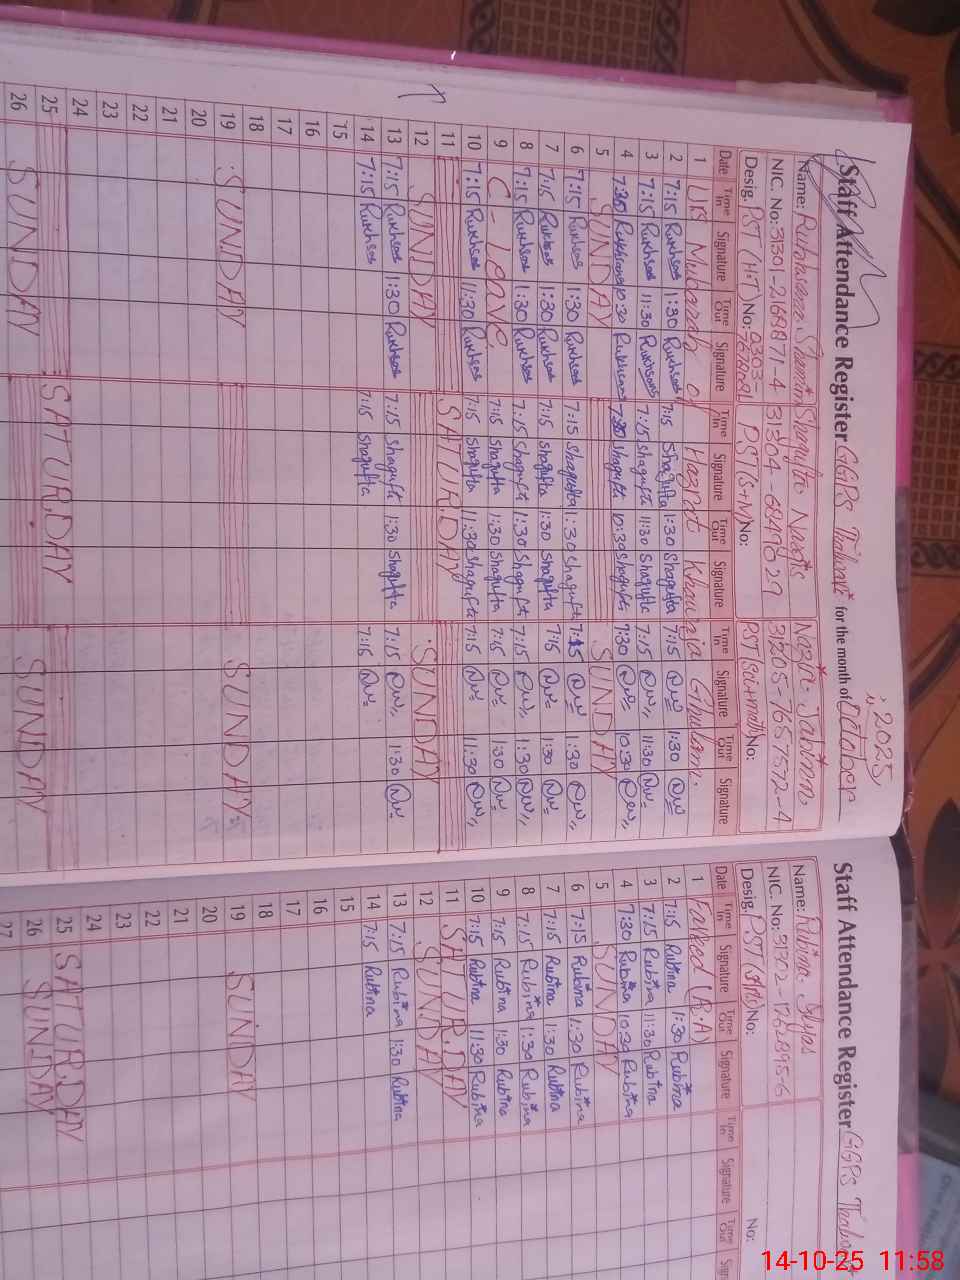 Staff Attendance Register GGPS for the month of October 2025
Name: Rukhsana Shamim Shagufta Nargis Nazia Jabina
NIC. No: 31301-2169871-4 31304-6849629
Desig. PST (H.T) No: PST (S+M) No: PST Sci+math No:
Date Time In Signature Time Out Signature Time In Signature Time Out Signature Time In Signature Time Out Signature
1 Urs Mubarak of Hazrat Khawaja Ghulam
2 7:15 Rukhsana 1:30 Rukhsana 7:15 Shagufta 1:30 Shagufta 7:15 1:30
3 7:15 Rukhsana 11:30 Rukhsana 7:15 Shagufta 11:30 Shagufta 7:15 11:30
4 7:30 Rukhsana 10:30 Rukhsana 7:30 Shagufta 10:30 Shagufta 7:30 10:30
5 SUNDAY SUNDAY
6 7:15 Rukhsana 1:30 Rukhsana 7:15 Shagufta 1:30 Shagufta 7:15 1:30
7 7:15 Rukhsana 1:30 Rukhsana 7:15 Shagufta 1:30 Shagufta 7:15 1:30
8 7:15 Rukhsana 1:30 Rukhsana 7:15 Shagufta 1:30 Shagufta 7:15 1:30
9 C-Leave. 7:15 Shagufta 1:30 Shagufta 7:15 1:30
10 7:15 Rukhsana 11:30 Rukhsana 7:15 Shagufta 11:30 Shagufta 7:15 11:30
11 SATURDAY
12 SUNDAY SUNDAY
13 7:15 Rukhsana 1:30 Rukhsana 7:15 Shagufta 1:30 Shagufta 7:15 1:30
14 7:15 Rukhsana 7:15 Shagufta 7:15
15
16
17
18
19 SUNDAY SUNDAY
20
21
22
23
24
25 SATURDAY
26 SUNDAY SUNDAY
Staff Attendance Register GGPS
Name: Rubina Ilyas
NIC. No:
Desig. PST No: No:
Date Time In Signature Time Out Signature Time In Signature Time Out
1 Fareed (R.A)
2 7:15 Rubina 1:30 Rubina
3 7:15 Rubina 11:30 Rubina
4 7:30 Rubina 10:30 Rubina
5 SUNDAY
6 7:15 Rubina 1:30 Rubina
7 7:15 Rubina 1:30 Rubina
8 7:15 Rubina 1:30 Rubina
9 7:15 Rubina 1:30 Rubina
10 7:15 Rubina 11:30 Rubina
11 SATURDAY
12 SUNDAY
13 7:15 Rubina 1:30 Rubina
14 7:15 Rubina
15
16
17
18
19 SUNDAY
20
21
22
23
24
25 SATURDAY
26 SUNDAY
27
14-10-25 11:58